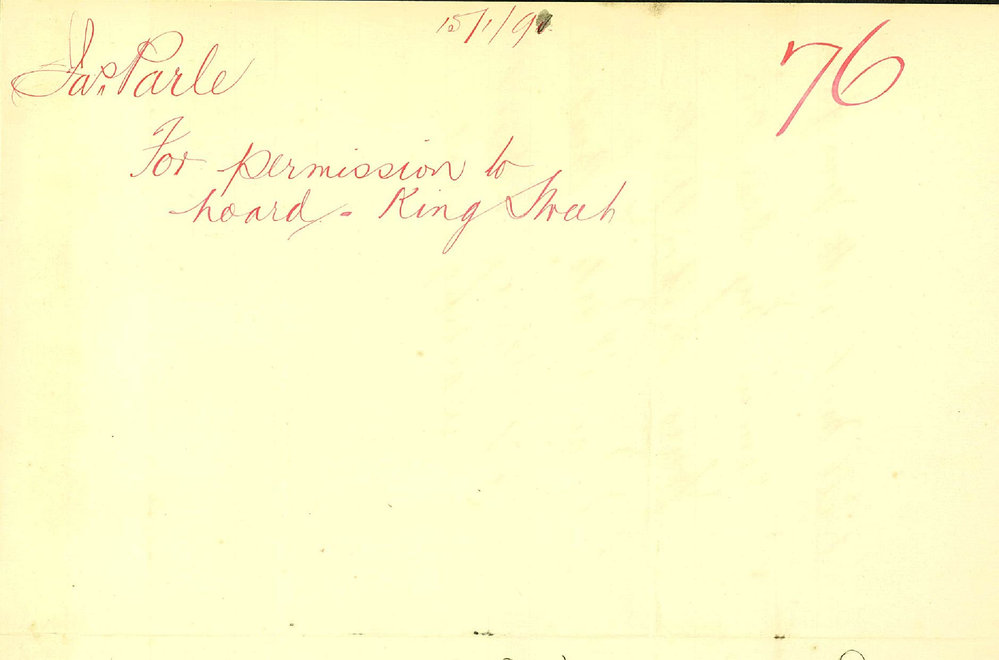 15/1/91
76
Jas. Parle
For permission to
hoard - King Street